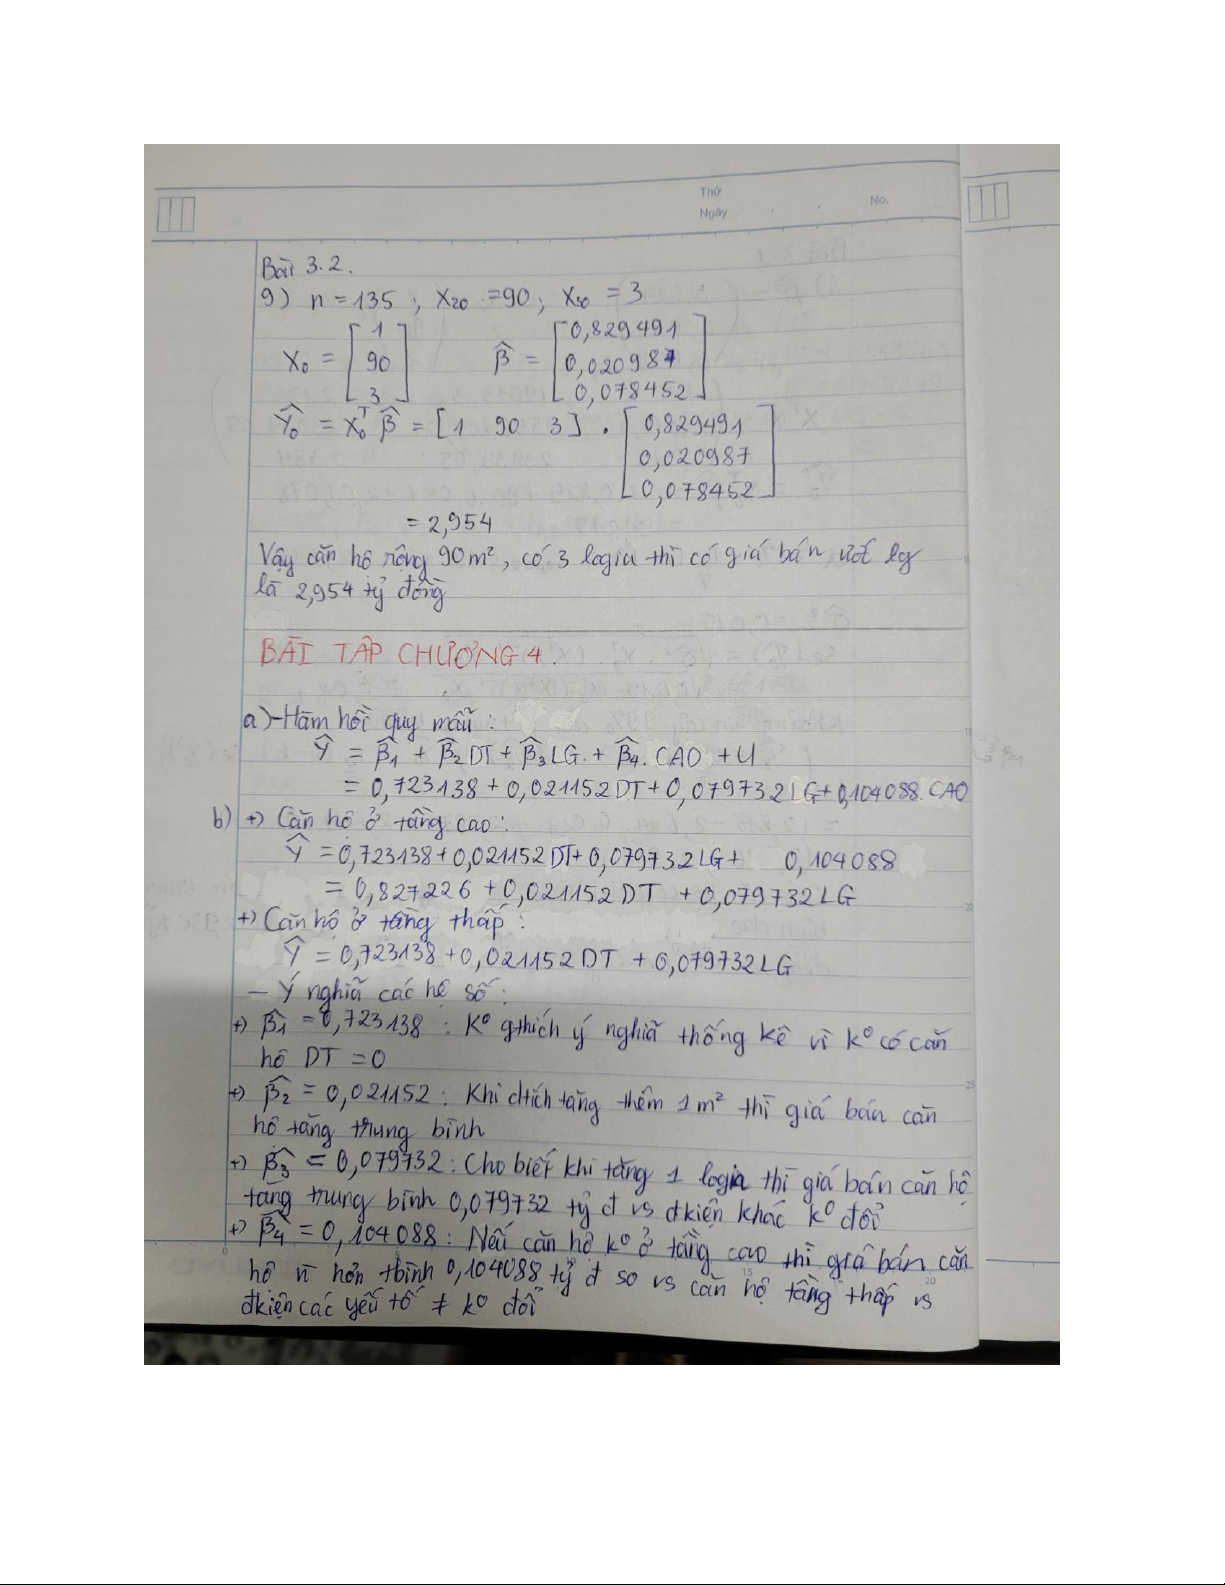 Thứ
Ngày
No.
Bài 3.2.
g) n = 135 ; X₂₀ = 90 ; X₃₀ = 3
X₀ = [1 90 3] β̂ = [0,829491 0,020987 0,078452]
Ŷ₀ = X₀ᵀ β̂ = [1 90 3] . [0,829491 0,020987 0,078452]
= 2,954
Vậy căn hộ rộng 90m², có 3 logia thì có giá bán ước lg
là 2,954 tỷ đồng
BÀI TẬP CHƯƠNG 4.
a) - Hàm hồi quy mẫu :
Ŷ = β̂₁ + β̂₂ DT + β̂₃ LG. + β̂₄. CAO + U
= 0,723138 + 0,021152 DT + 0,079732 LG + 0,104088. CAO
b) +) Căn hộ ở tầng cao :
Ŷ = 0,723138 + 0,021152 DT + 0,079732 LG + 0,104088
= 0,827226 + 0,021152 DT + 0,079732 LG
+) Căn hộ ở tầng thấp :
Ŷ = 0,723138 + 0,021152 DT + 0,079732 LG
- Ý nghĩa các hệ số :
+) β̂₁ = 0,723138 : K⁰ gthích ý nghĩa thống kê vì k⁰ có căn
hộ DT = 0
+) β̂₂ = 0,021152 : Khi dtích tăng thêm 1m² thì giá bán căn
hộ tăng trung bình
+) β̂₃ = 0,079732 : Cho biết khi tăng 1 logia thì giá bán căn hộ
tăng trung bình 0,079732 tỷ đ vs đkiện khác k⁰ đổi
+) β̂₄ = 0,104088 : Nếu căn hộ k⁰ ở tầng cao thì giá bán căn
hộ rẻ hơn tbình 0,104088 tỷ đ so vs căn hộ tầng thấp vs
đkiện các yếu tố ≠ k⁰ đổi